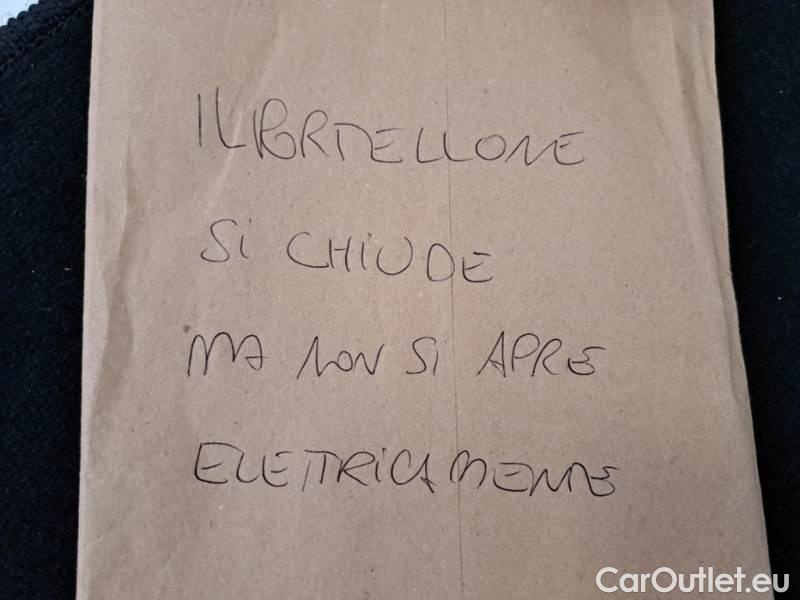 IL PORTELLONE
Si CHIUDE
MA NON Si APRE
ELETTRICAMENTE
CarOutlet.eu